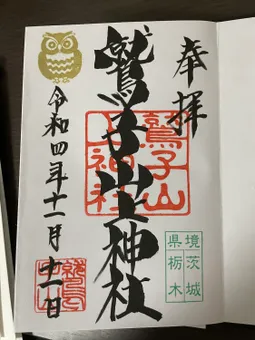 奉拝
鷲子山上神社
鷲子山
上神社
令和四年十一月十一日
境 茨城
県 栃木